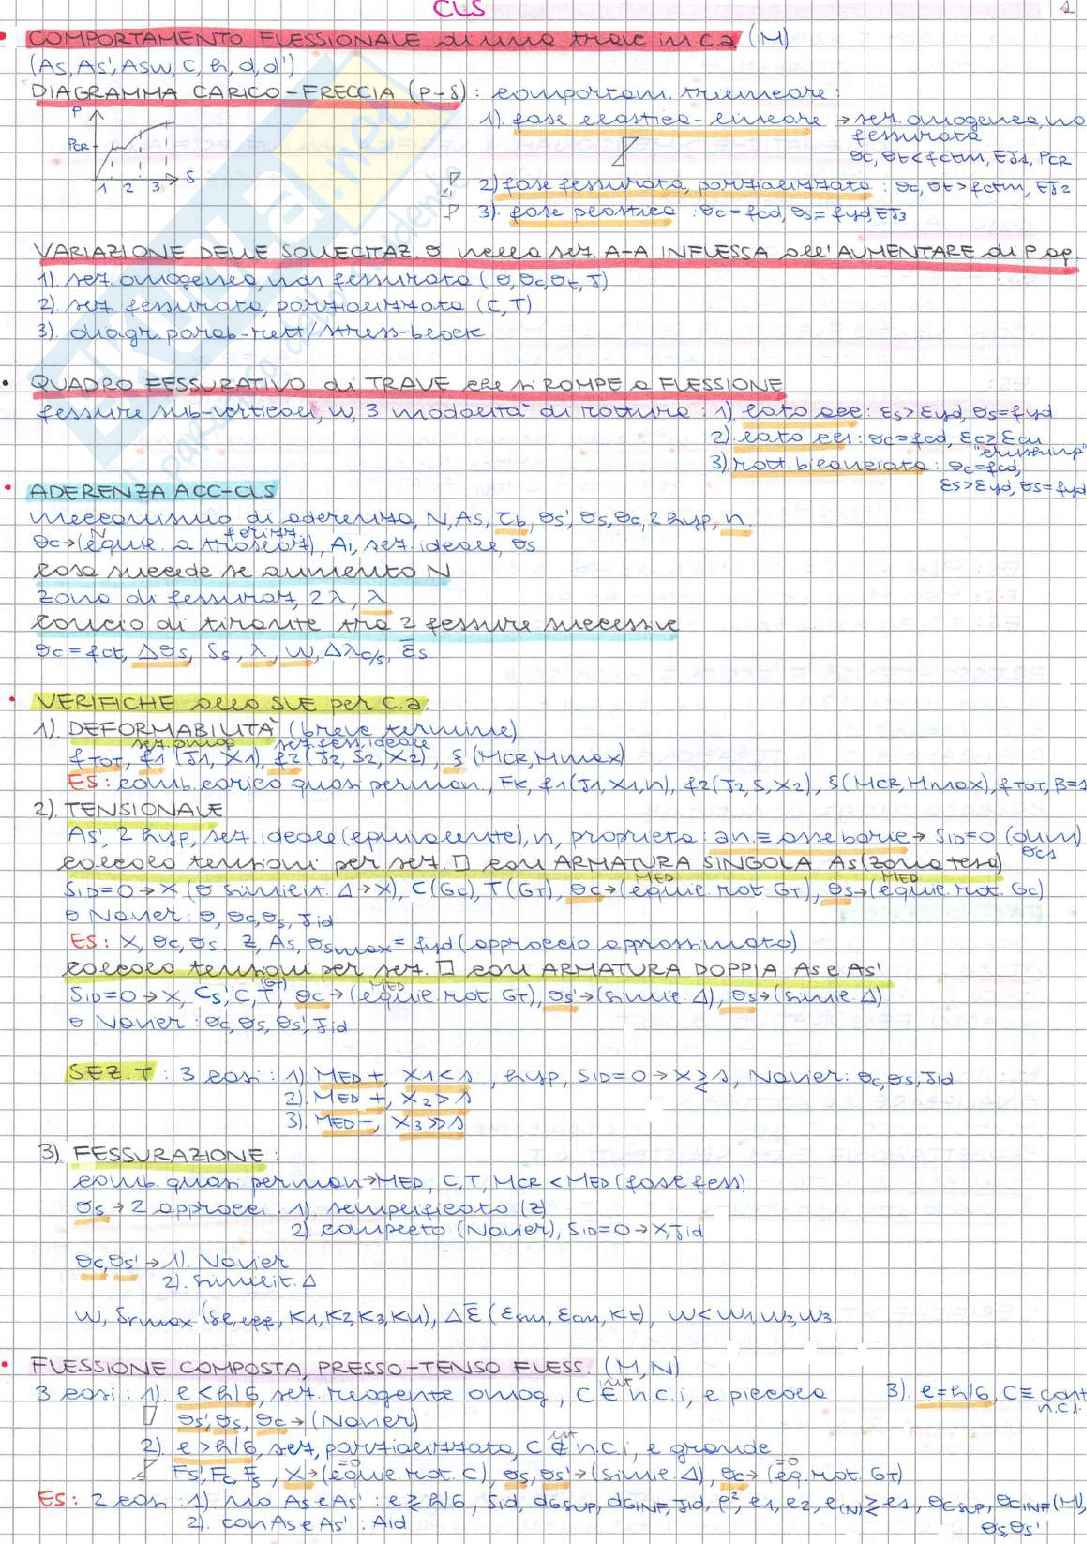 CLS
1
COMPORTAMENTO FLESSIONALE di una trave in c.a (M)
(As, As', Asw, c, h, d, d')
DIAGRAMMA CARICO-FRECCIA (P-δ): comportam. trilineare:
P
PCR
1 2 3 δ
1). fase elastica-lineare → sez. omogenea, no
fessurata
σc, σt<fctm, EJ1, PCR
2) fase fessurata, parzializzata: σc, σt>fctm, EJ2
3). fase plastica: σc=fcd, σs=fyd, EJ3
VARIAZIONE DELLE SOLLECITAZ σ nella sez A-A INFLESSA all'AUMENTARE di P ap.
1). sez. omogenea, non fessurata (σ, σc, σt, J)
2). sez fessurata, parzializzata (C, T)
3). diagr. parab-rett/stress-block
QUADRO FESSURATIVO di TRAVE che si ROMPE a FLESSIONE
fessure sub-verticali, w, 3 modalità di rottura: 1) lato acc: εs>εyd, σs=fyd
2). lato cls: σc=fcd, εc≥εcu
"crushing"
3) rott bilanciata: σc=fcd,
εs>εyd, σs=fyd
ADERENZA ACC-CLS
meccanismo di aderenza, N, As, τb, σs', σs, σc, 2 hyp, n
σc→(equil. a traslaz), Ai, sez. ideale, σs
cosa succede se aumento N
zona di fessuraz, 2λ, λ
concio di tirante tra 2 fessure successive
σc=fct, Δσs, Ss, λ, w, Δλc/s, εs
VERIFICHE allo SLE per c.a
1). DEFORMABILITÀ (breve termine)
sez. omog sez. fess. ideale
fTOT, f1 (J1, X1), f2 (J2, S2, X2), ξ (MCR, Mmax)
ES: comb. carico quasi perman, FK, f1(J1, X1, n), f2(J2, S, X2), ξ(MCR, Mmax), fTOT, β=1
2). TENSIONALE
As', 2 hyp, sez. ideale (equivalente), n, proprietà: an ≡ asse baric → SID=0 (dim)
calcolo tensioni per sez. □ con ARMATURA SINGOLA As (zona tesa)
SID=0→X (o similit. Δ→X), C(GC), T(GT), σc→(equil. rot GT), σs→(equil. rot. GC)
o Navier: σ, σc, σs, Jid
ES: X, σc, σs z, As, σsmax=fyd (approccio approssimato)
calcolo tensioni per sez. □ con ARMATURA DOPPIA As e As'
SID=0→X, Cs', C, T, σc→(equil. rot. GT), σs'→(simil. Δ), σs→(simil. Δ)
o Navier: σc, σs, σs', Jid
SEZ. T: 3 casi: 1) MED+, X1<s, hyp, SID=0→X≷s, Navier: σc, σs, Jid
2). MED+, X2>s
3). MED-, X3>>s
3). FESSURAZIONE:
comb. quasi perman→MED, C, T, MCR<MED (fase fess)
σs→2 approcci: 1). semplificato (z)
2) completo (Navier), SID=0→X, Jid
σc, σs'→1). Navier
2). similit. Δ
w, Srmax (ρeff, K1, K2, K3, K4), Δε (εsm, εcm, Kt), w<w1, w2, w3
FLESSIONE COMPOSTA, PRESSO-TENSO FLESS. (M, N)
3 casi: 1). e<h/6, sez. reagente omog, C∈int n.c.i, e piccola 3). e=h/6, C≡cont n.c.i.
σs', σs, σc→(Navier)
2). e>h/6, sez, parzializzata, C∉int n.c.i, e grande
Fs', Fc, Fs, X→(equil rot. C), σs, σs'→(simil. Δ), σc→(eq. rot. GT)
ES: 2 casi: 1). no As e As': e≷h/6, Sid, dGSUP, dGINF, Jid, ρ², e1, e2, e(N)≷e1, σcSUP, σcINF (M),
2). con As e As': Aid σs, σs'